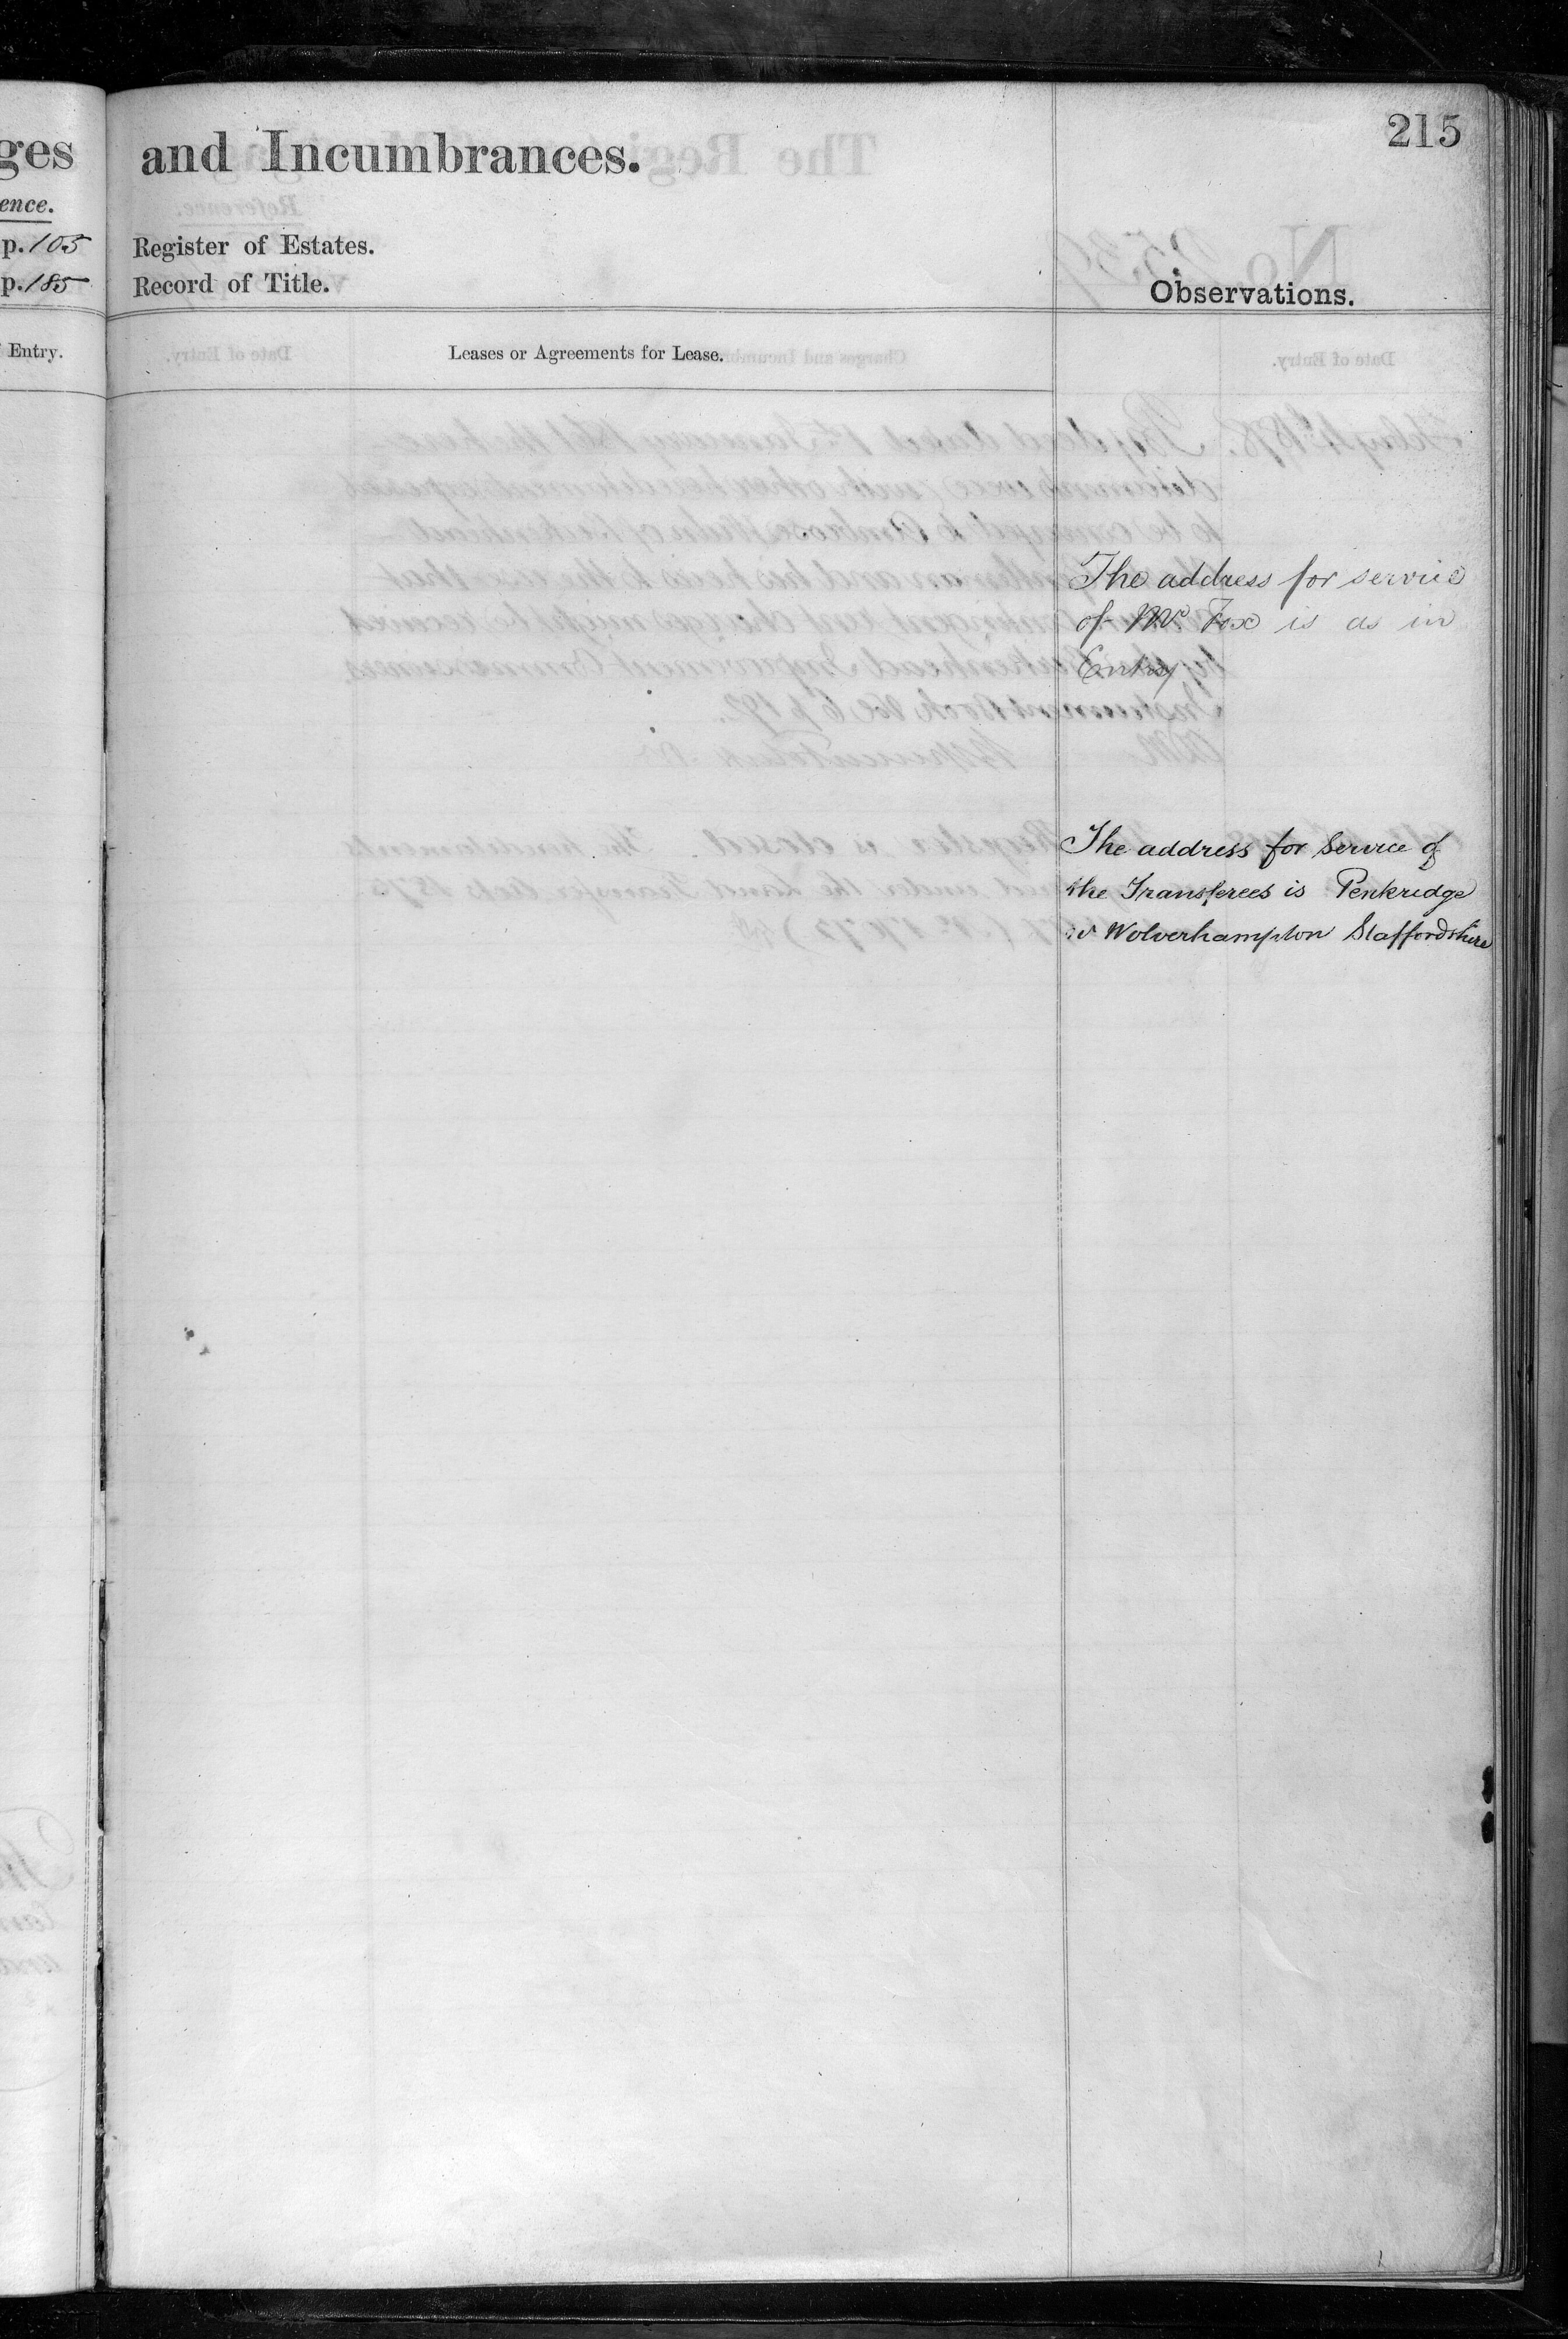 ges
ence.
p.105
p.185
Entry.
and Incumbrances.
215
Register of Estates.
Record of Title.
Observations.
Leases or Agreements for Lease.
The address for service
of Mr Fox is as in
Entry
The address for Service of
the Transferees is Penkridge
Wolverhampton Staffordshire